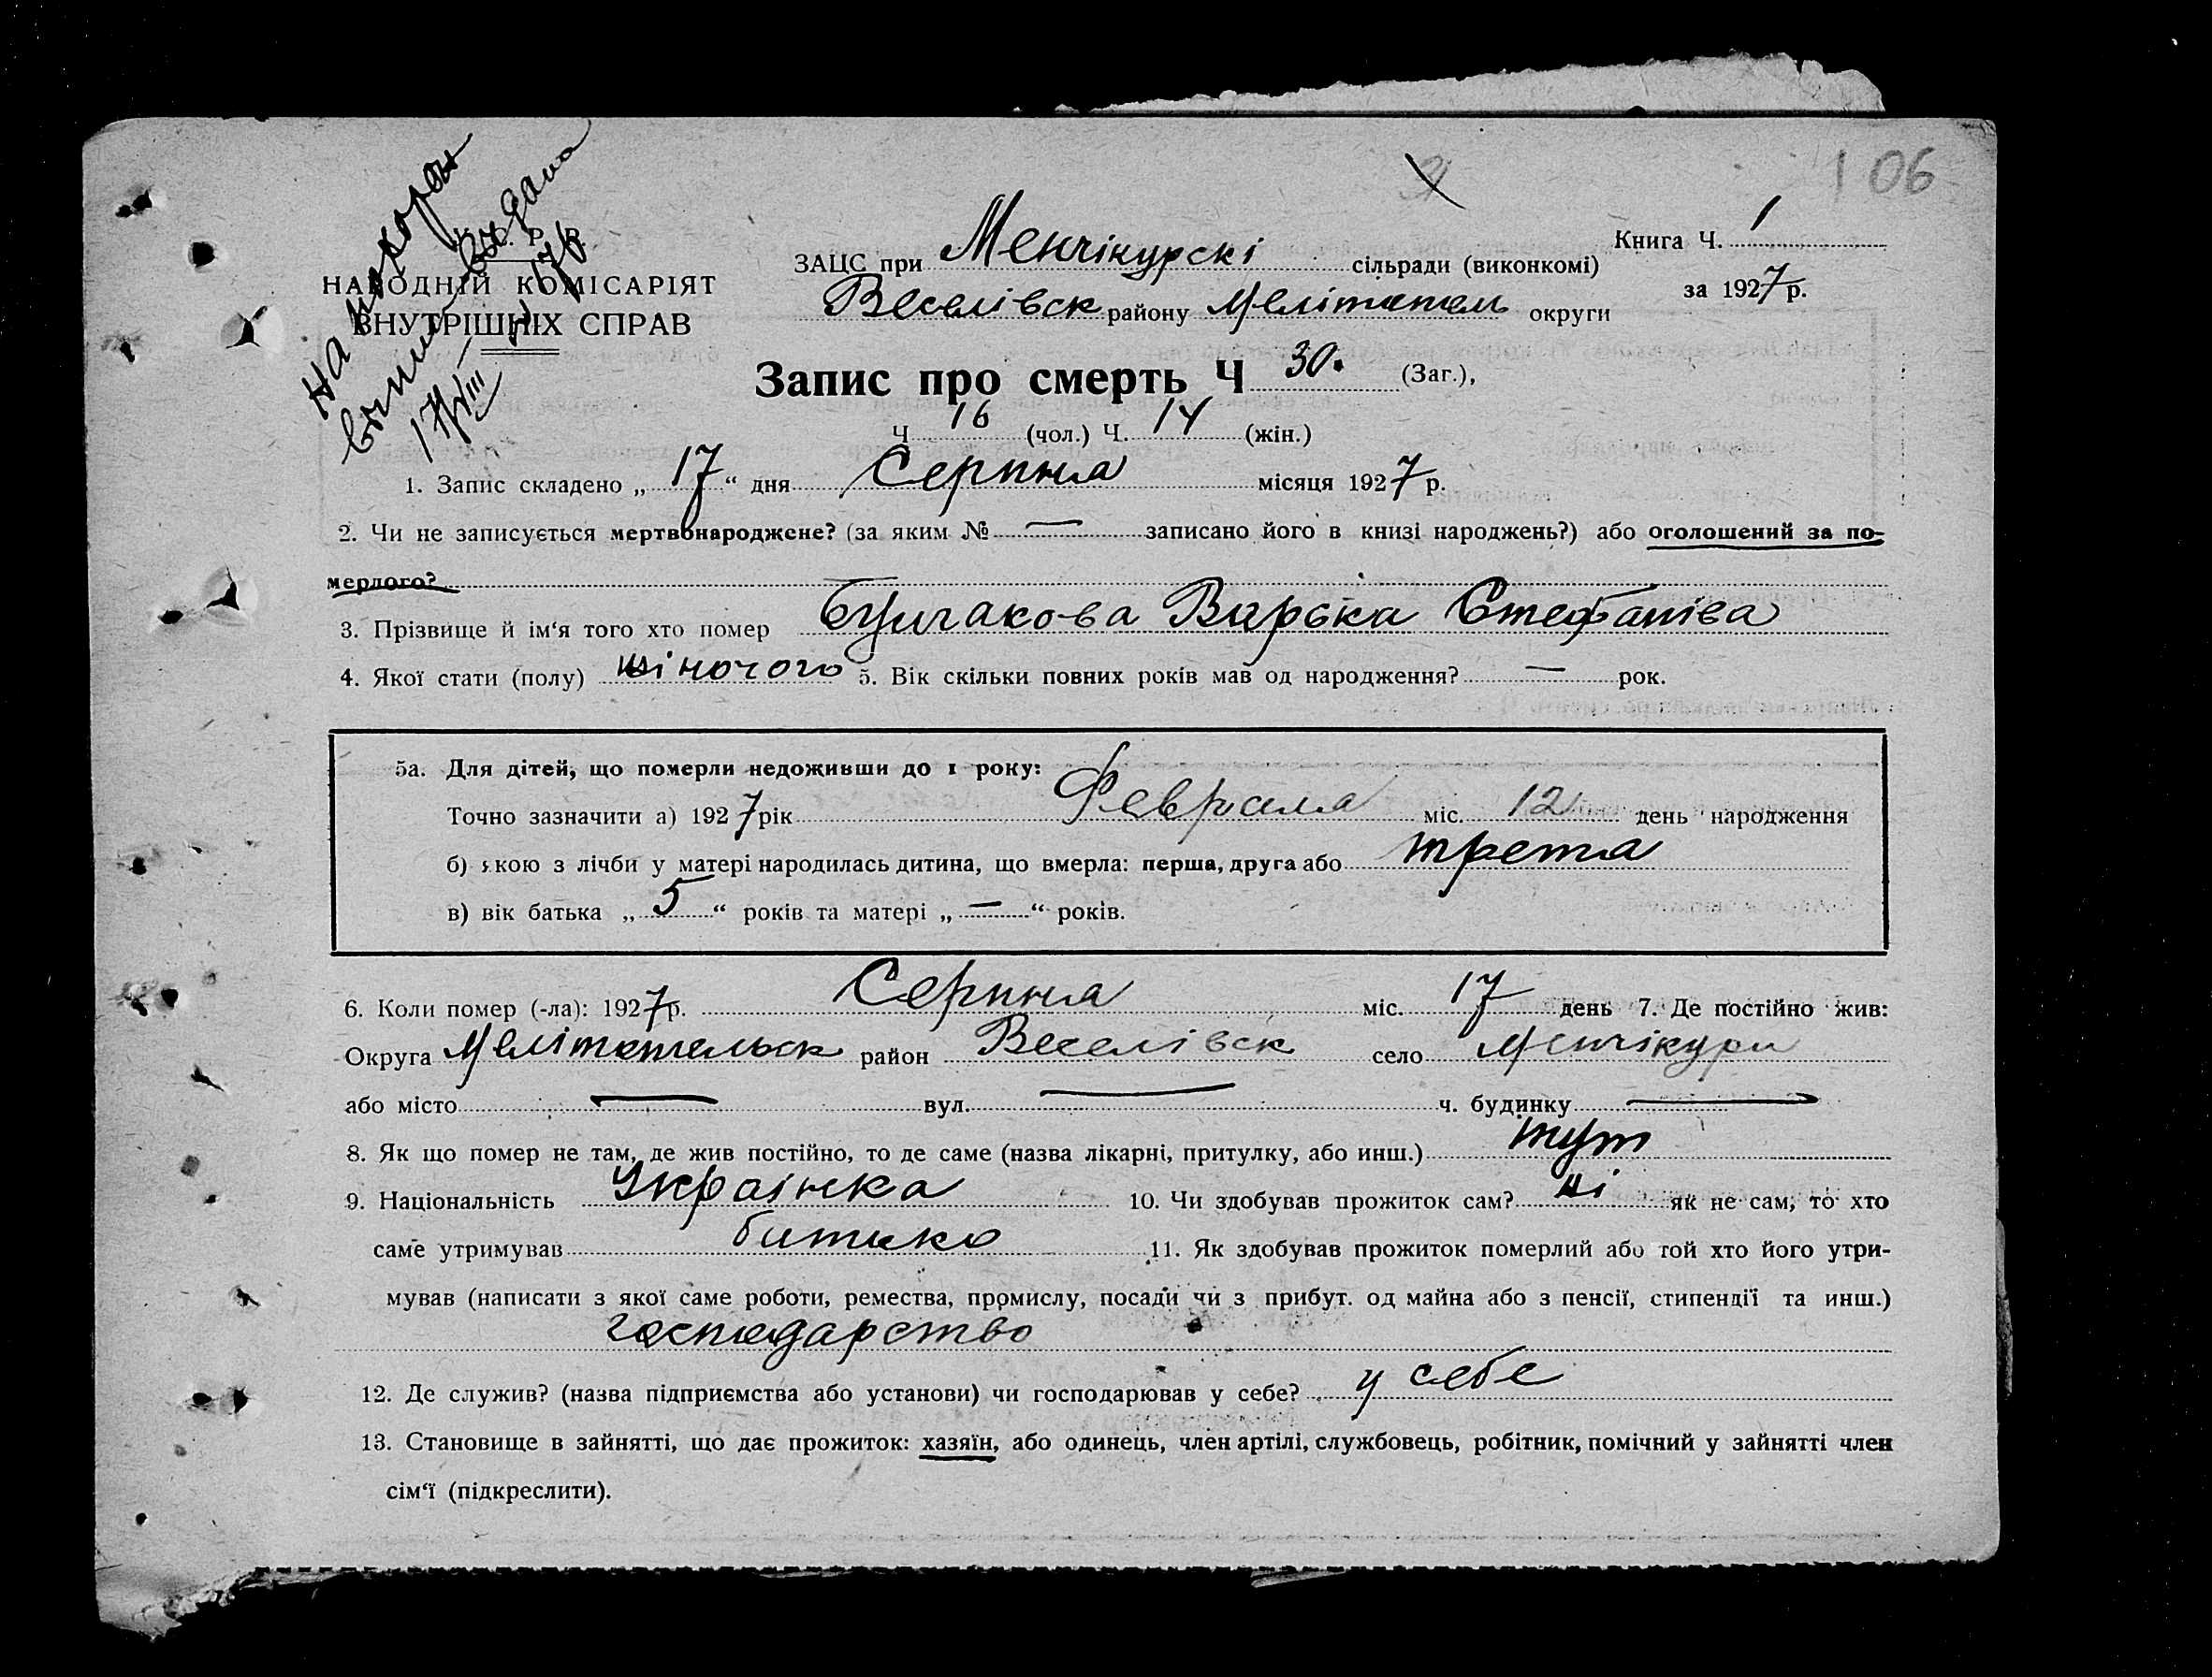 106
На похорон
випис видана
17/VIII 27 р
У. С. Р. Р.
НАРОДНІЙ КОМІСАРІЯТ
ВНУТРІШНІХ СПРАВ
Книга Ч. 1
за 1927 р.
ЗАЦС при Менчікурскі сільради (виконкомі)
Веселівск району Мелітопель округи
Запис про смерть Ч 30. (Заг.),
Ч 16 (чол.) Ч. 14 (жін.)
1. Запис складено „ 17 “ дня Серпня місяця 1927 р.
2. Чи не записується мертвонароджене? (за яким № — записано його в книзі народжень?) або оголошений за по-
мерлого?
3. Прізвище й ім‘я того хто помер Булчакова Варька Стефанівна
4. Якої стати (полу) жіночого 5. Вік скільки повних років мав од народження? — рок.
5а. Для дітей, що померли недоживши до 1 року:
Точно зазначити а) 1927 рік Февраля міс. 12 день народження
б) якою з лічби у матері народилась дитина, що вмерла: перша, друга або трета
в) вік батька „ 5 “ років та матері „ — “ років.
6. Коли помер (-ла): 1927 р. Серпня міс. 17 день 7. Де постійно жив:
Округа Мелітопельск район Веселівск село Менчікури
або місто — вул. — ч. будинку —
8. Як що помер не там, де жив постійно, то де саме (назва лікарні, притулку, або инш.) тут
9. Національність Українка 10. Чи здобував прожиток сам? ні як не сам, то хто
саме утримував батько 11. Як здобував прожиток померлий або той хто його утри-
мував (написати з якої саме роботи, ремества, промислу, посади чи з прибут. од майна або з пенсії, стипендії та инш.)
господарство
12. Де служив? (назва підприємства або установи) чи господарював у себе? у себе
13. Становище в зайнятті, що дає прожиток: хазяїн, або одинець, член артілі, службовець, робітник, помічний у зайнятті член
сім‘ї (підкреслити).